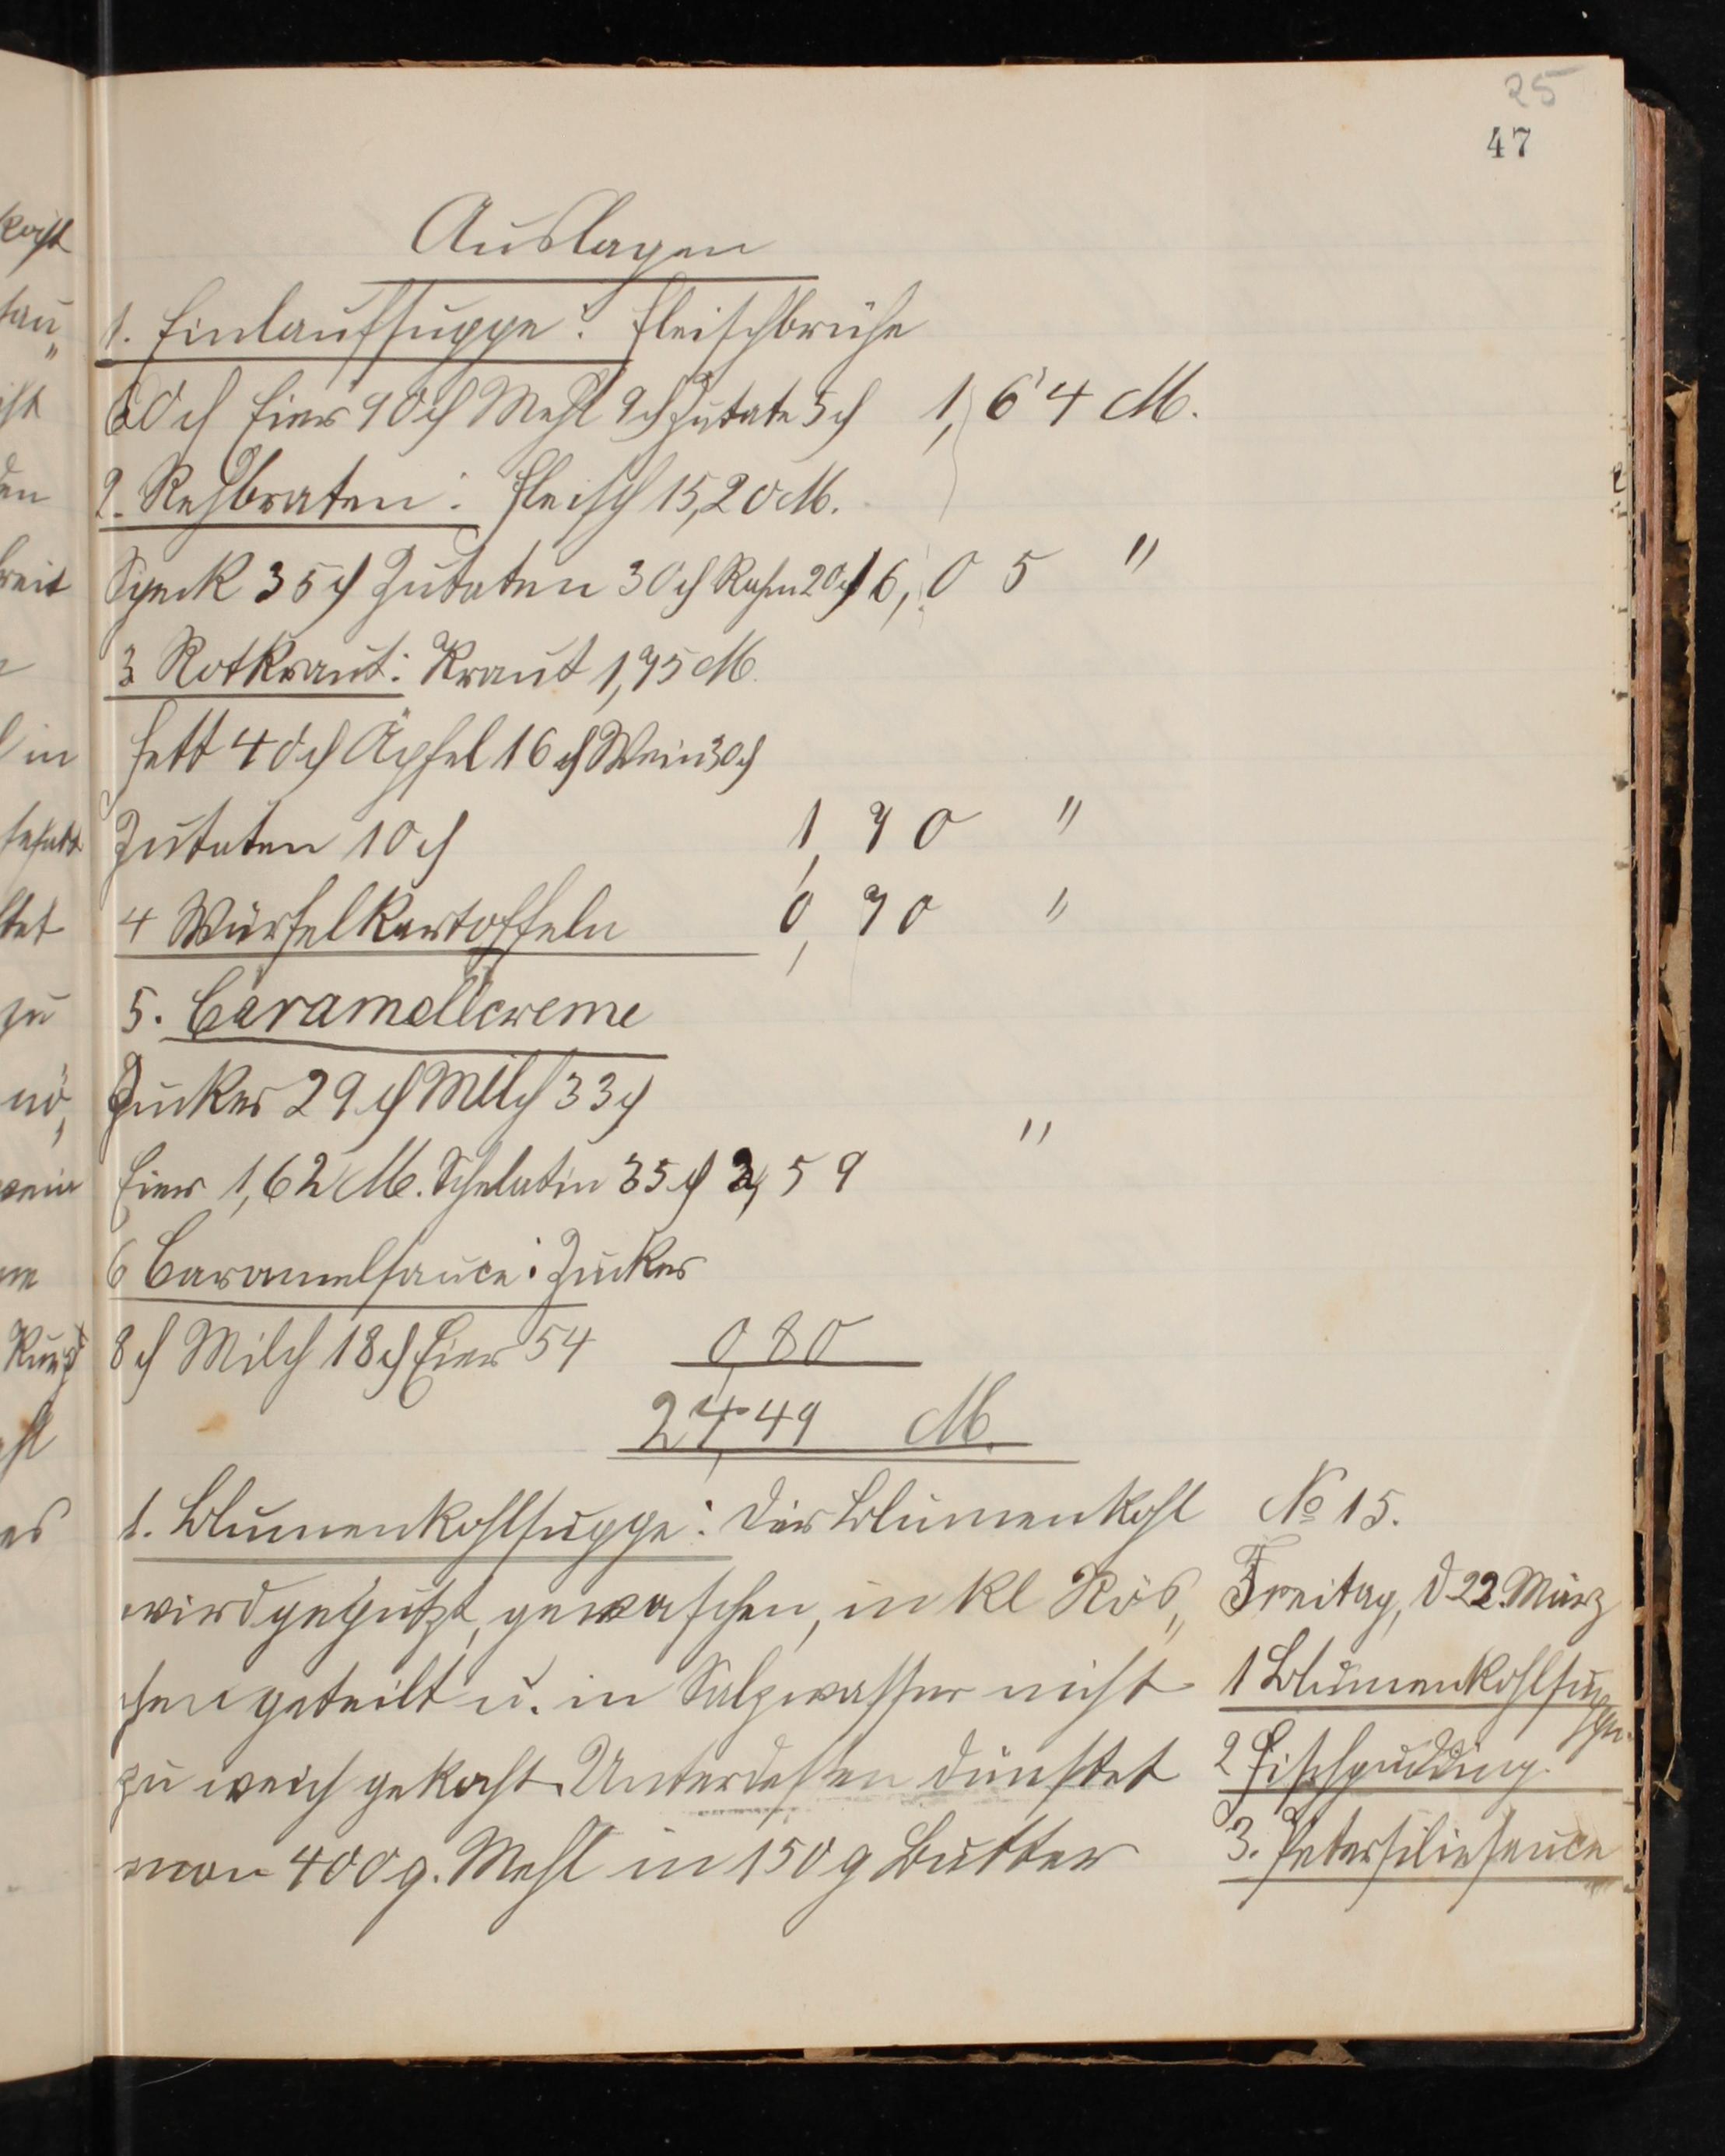 25
47
Auslagen
1. Einlaufsuppe: Fleischbrühe
60 ₰ Eier 90 ₰ Mehl 9 ₰ Zutate 5 ₰ 1,64 M.
2. Rehbraten: Fleisch 15,20 M.
Speck 35 ₰ Zutaten 30 ₰ Rahm 20 ₰ 16,05 "
3 Rotkraut: Kraut 1,75 M.
Fett 40 ₰ Äpfel 16 ₰ Wein 30 ₰
Zutaten 10 ₰ 1,70 "
4 Würfelkartoffeln 0,70 "
5. Caramellcreme
Zucker 29 ₰ Milch 33 ₰
"
Eier 1,62 M. Schelatin 35 ₰ 2,59
6 Caramelsauce: Zucker
8 ₰ Milch 18 ₰ Eier 54 0,80
24,49 M.
1. Blumenkohlsuppe: Der Blumenkohl
wird geputzt, gewaschen, in kl Rös„
chen geteilt u. in Salzwasser nicht
zu weich gekocht. Unterdessen dünstet
man 400 g. Mehl in 150 g Butter
№ 15.
Freitag, d 22. März
1 Blumenkohlsuppe.
2 Fischpudding.
3. Petersiliesauce